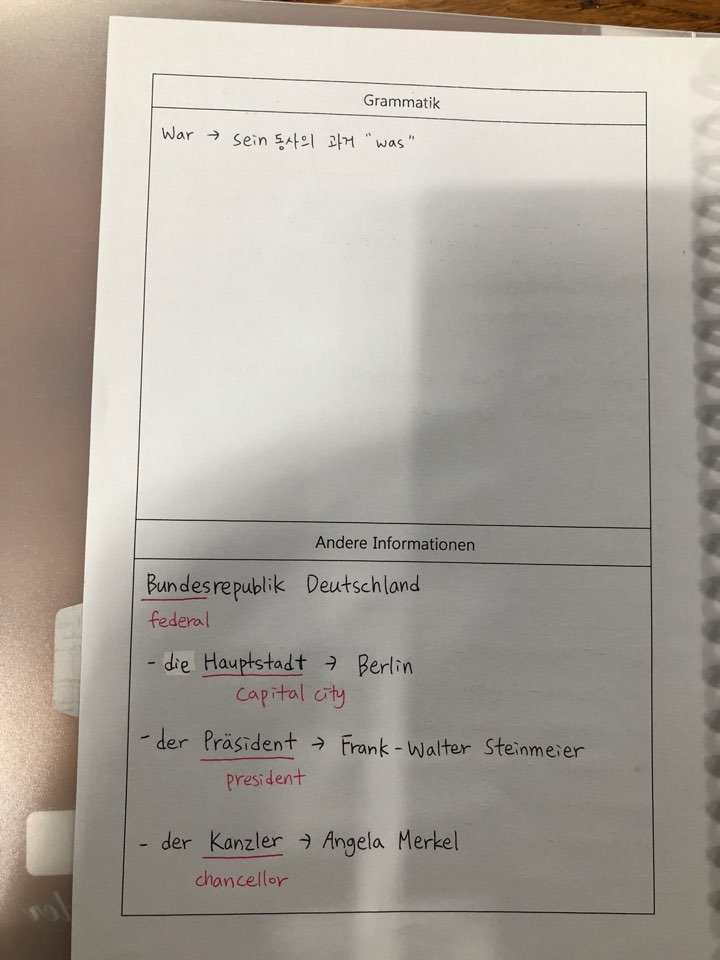 Grammatik
War → sein 동사의 과거 "was"
Andere Informationen
Bundesrepublik Deutschland
federal
- die Hauptstadt → Berlin
capital city
- der Präsident → Frank-Walter Steinmeier
president
- der Kanzler → Angela Merkel
chancellor